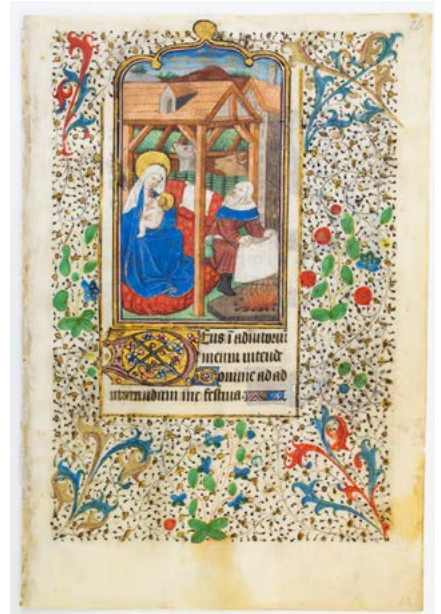 Deus ī adiutoriū
meum intende
Domine ad ad
iuuandum me festina.